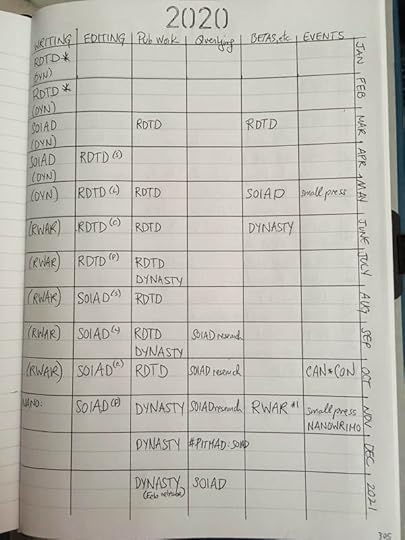 2020
WRITING EDITING Pub Work Querying BETAS, etc EVENTS
RDTD *
(DYN)
JAN
RDTD *
(DYN)
FEB
SOIAD RDTD RDTD
(DYN)
MAR
SOIAD RDTD (S)
(DYN)
APR
(DYN) RDTD (L) RDTD SOIAD small press
MAY
(RWAR) RDTD (C) RDTD DYNASTY
JUNE
(RWAR) RDTD (P) RDTD
DYNASTY
JULY
(RWAR) SOIAD (S) RDTD
AUG
(RWAR) SOIAD (L) RDTD SOIAD research
DYNASTY
SEP
(RWAR) SOIAD (C) RDTD SOIAD research CAN*CON
OCT
NANO: SOIAD (P) DYNASTY SOIAD research RWAR #1 small press
NANOWRIMO
NOV
DYNASTY #PITMAD: SOIAD
DEC
DYNASTY SOIAD
(Feb release)
2021